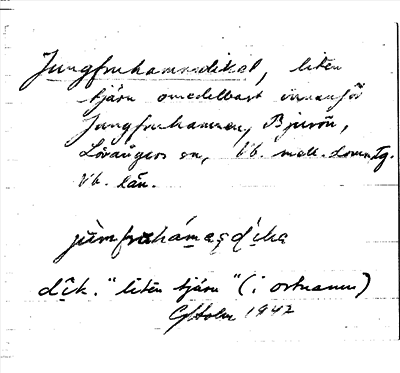 Jungfruhamnsdiket, liten
tjärn omedelbart innanför
Jungfruhamnen, Bjurön,
Lövångers sn, Vb. mell. doms. Tg.
Vb. län.
dîk. "liten tjärn" (i ortnamn)
GHolm 1942